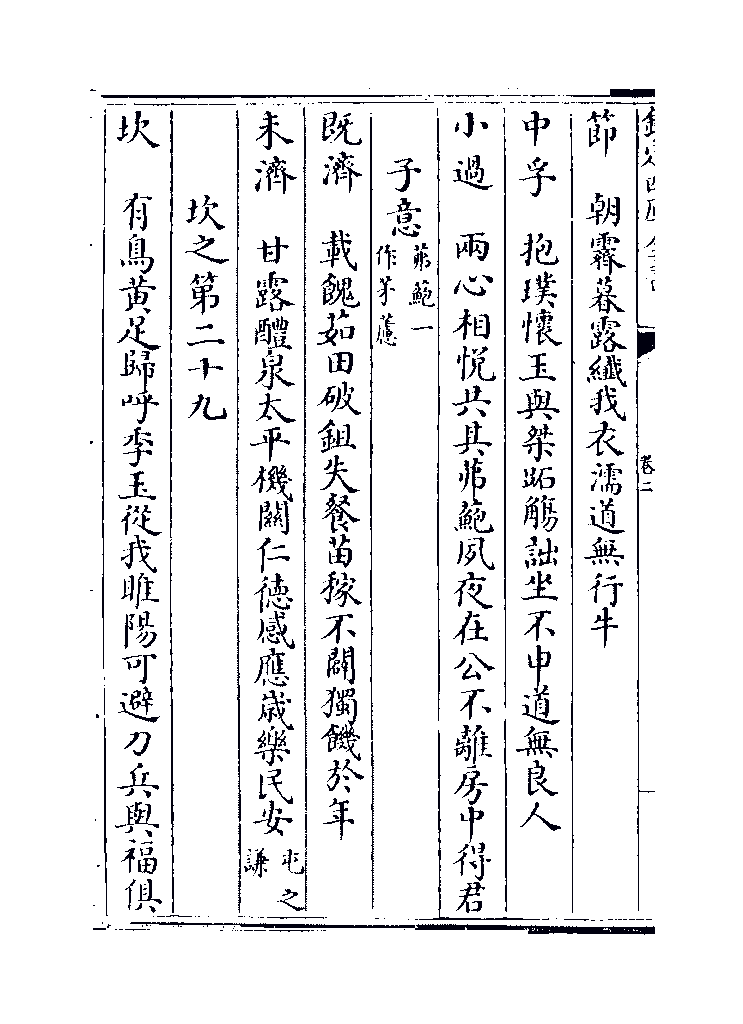 欽定四庫全書 卷二
節 朝霽暮露纖我衣濡道無行牛
中孚 抱璞懷玉與桀跖觴詘坐不申道無良人
小過 兩心相悅共其茀鮑夙夜在公不離房中得君
子意 茀鮑一作茅蘆
既濟 載餽茹田破鉏失餐苗稼不闢獨饑於年
未濟 甘露醴泉太平機關仁德感應嵗樂民安 屯之謙
坎之第二十九
坎 有鳥黄足歸呼季玉從我睢陽可避刀兵與福俱